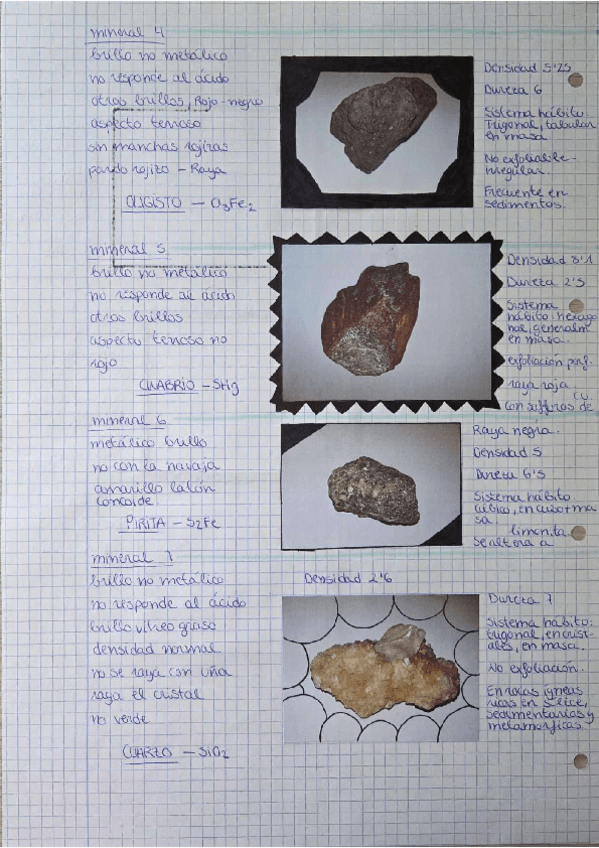 mineral 4
brillo no metálico
no responde al ácido
otros brillos, Rojo-negro
aspecto terroso
sin manchas rojizas
pardo rojizo - Raya
OLIGISTO - O3Fe2
Densidad 5'25
Dureza 6
Sistema hábito
Trigonal, tabular
en masa
No exfoliable-
irregular.
Frecuente en
sedimentos.
mineral 5
brillo no metálico
no responde al ácido
otros brillos
aspecto terroso no
rojo
CINABRIO - SHg
Densidad 8'1
Dureza 2'5
Sistema
hábito: hexago
nal, generalm
en masa.
exfoliación perf.
raya roja
con sulfuros de
Cu.
mineral 6
metálico brillo
no con la navaja
amarillo latón
concoide
PIRITA - S2Fe
Raya negra.
Densidad 5
Dureza 6'5
Sistema hábito
cúbico, en cubo+ma
sa.
se altera a
limonita.
mineral 7
brillo no metálico
no responde al ácido
brillo vítreo graso
densidad normal
no se raya con uña
raya el cristal
no verde
CUARZO - SiO2
Densidad 2'6
Dureza 7
Sistema hábito:
trigonal, en crist-
ales, en masa.
No exfoliación.
En rocas ígneas
ricas en sílice,
sedimentarias y
metamórficas.